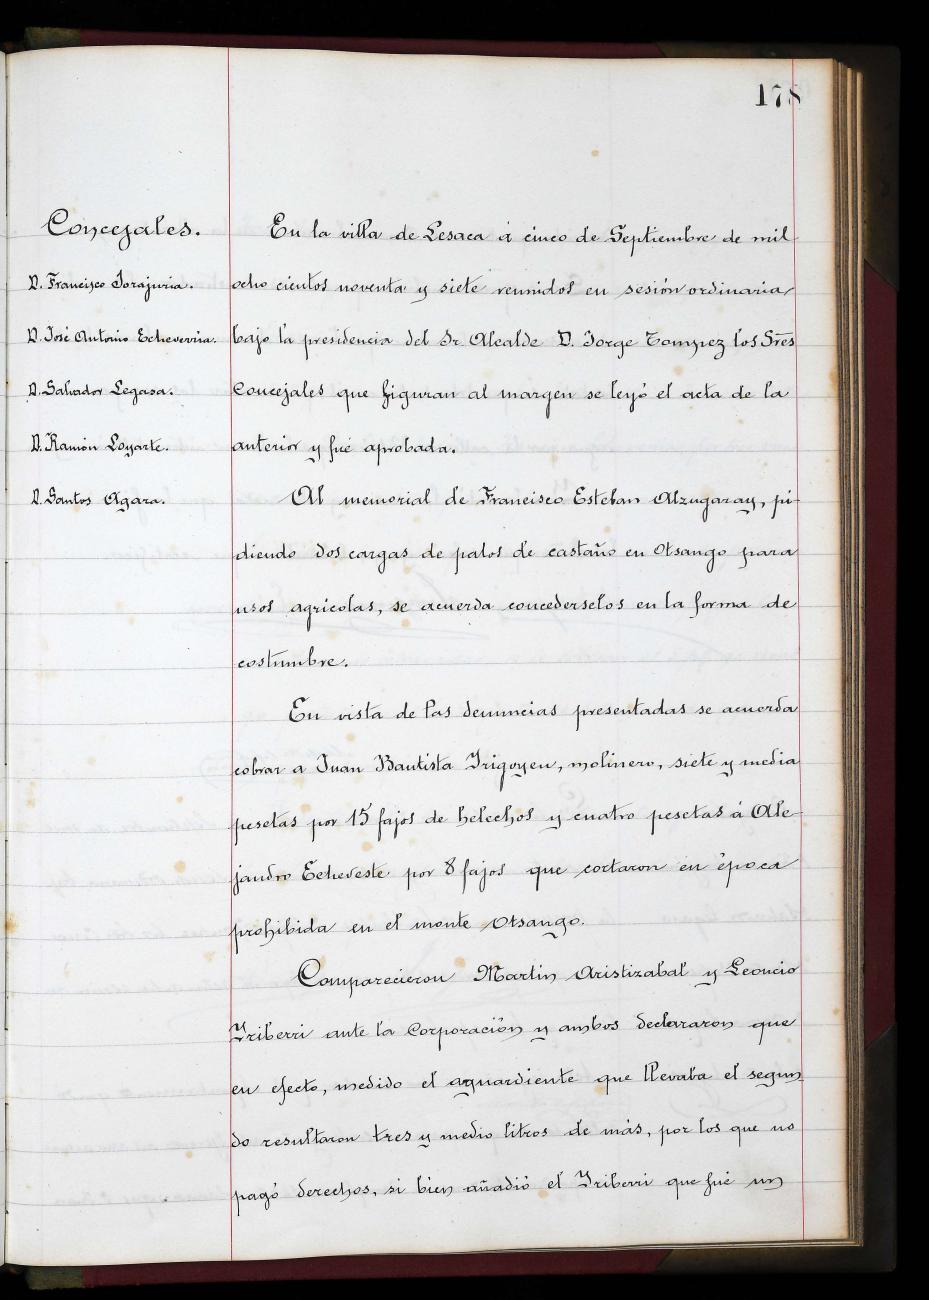 178
Concejales.
D. Francisco Iorajuria.
D. José Antonio Echeverria.
D. Salvador Legasa.
D. Ramón Loyarte.
D. Santos Agara.
En la villa de Lesaca á cinco de Septiembre de mil
ocho cientos noventa y siete reunidos en sesión ordinaria,
bajo la presidencia del Sr. Alcalde D. Jorge los Sres
Concejales que figuran al margen se leyó el acta de la
anterior y fué aprobada.
Al memorial de Francisco Esteban Alzugaray, pi-
diendo dos cargas de palos de castaño en Otsango para
usos agricolas, se acuerda concederselos en la forma de
costumbre.
En vista de las denuncias presentadas se acuerda
cobrar a Juan Bautista Yrigoyen, molinero, siete y media
pesetas por 15 fajos de helechos y cuatro pesetas á Ale-
jandro Echeveste por 8 fajos que cortaron en época
prohibida en el monte Otsango.
Comparecieron Martin Aristizabal y Leoncio
Yriberri ante la Corporación y ambos declararon que
en efecto, medido el aguardiente que llevaba el segun-
do resultaron tres y medio litros de más, por los que no
pagó derechos, si bien añadió el Yriberri que fué un